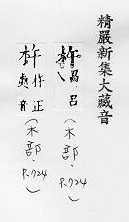 精嚴新集大藏音
杵 昌呂 (木部, P.924)
杵 杵正 (木部. P.924)